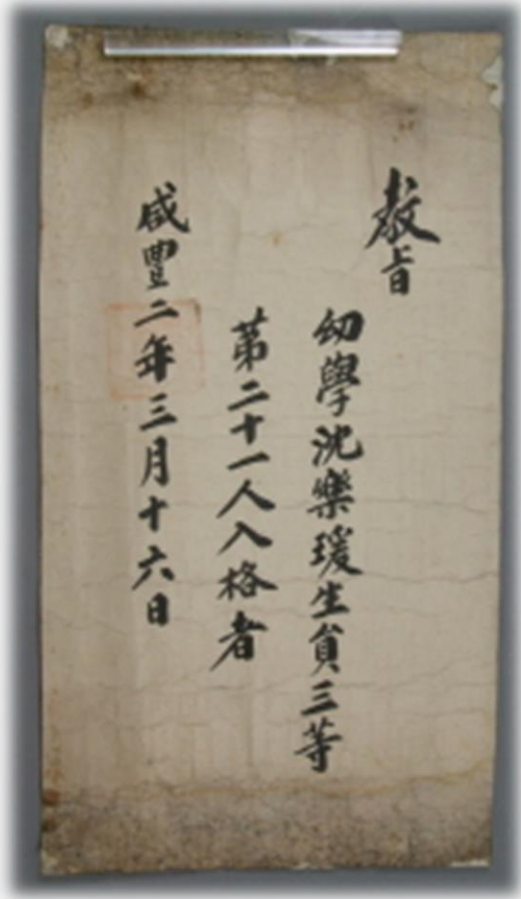 敎旨
幼學沈樂瑗生員三等
第二十一人入格者
咸豐二年三月十六日